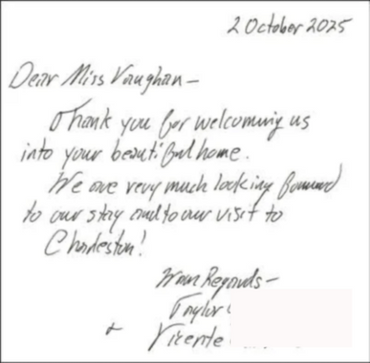 2 October 2025
Dear Miss Vaughan—
Thank you for welcoming us
into your beautiful home.
We are very much looking forward
to our stay and to our visit to
Charleston!
Warm Regards—
Taylor
+ Vicente